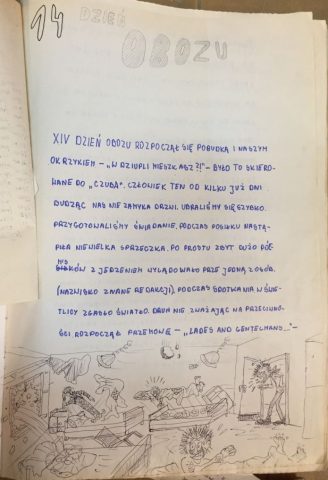 14 DZIEŃ
OBOZU
XIV DZIEŃ OBOZU ROZPOCZĄŁ SIĘ POBUDKĄ I NASZYM
OKRZYKIEM - „W DZIUPLI MIESZKASZ?!" - BYŁO TO SKIERO-
WANE DO „CZUBA". CZŁOWIEK TEN OD KILKU JUŻ DNI
BUDZĄC NAS NIE ZAMYKA DRZWI. UBRALIŚMY SIĘ SZYBKO.
PRZYGOTOWALIŚMY ŚNIADANIE. PODCZAS POSIŁKU NASTĄ-
PIŁA NIEWIELKA SPRZECZKA. PO PROSTU ZBYT DUŻO PÓŁ-
MISKÓW Z JEDZENIEM WYLĄDOWAŁO PRZED JEDNĄ Z OSÓB.
(NAZWISKO ZNANE REDAKCJI). PODCZAS SPOTKANIA W ŚWIE-
TLICY ZGASŁO ŚWIATŁO. DRUH NIE ZWAŻAJĄC NA PRZECIWNO-
ŚCI ROZPOCZĄŁ PRZEMOWĘ - „LADES AND GENTELMANS..."-